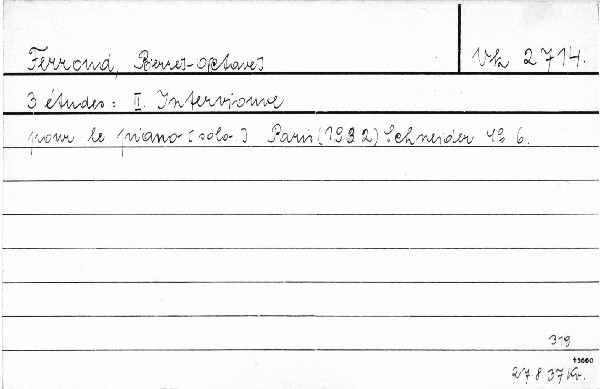 Ferroud, Pierre-Octave
Vk 2714.
3 études: II. Intervjouve
pour le piano [solo.] Paris (1932) Schneider 4° 6.
319
†3000
27.8.37 Kr.